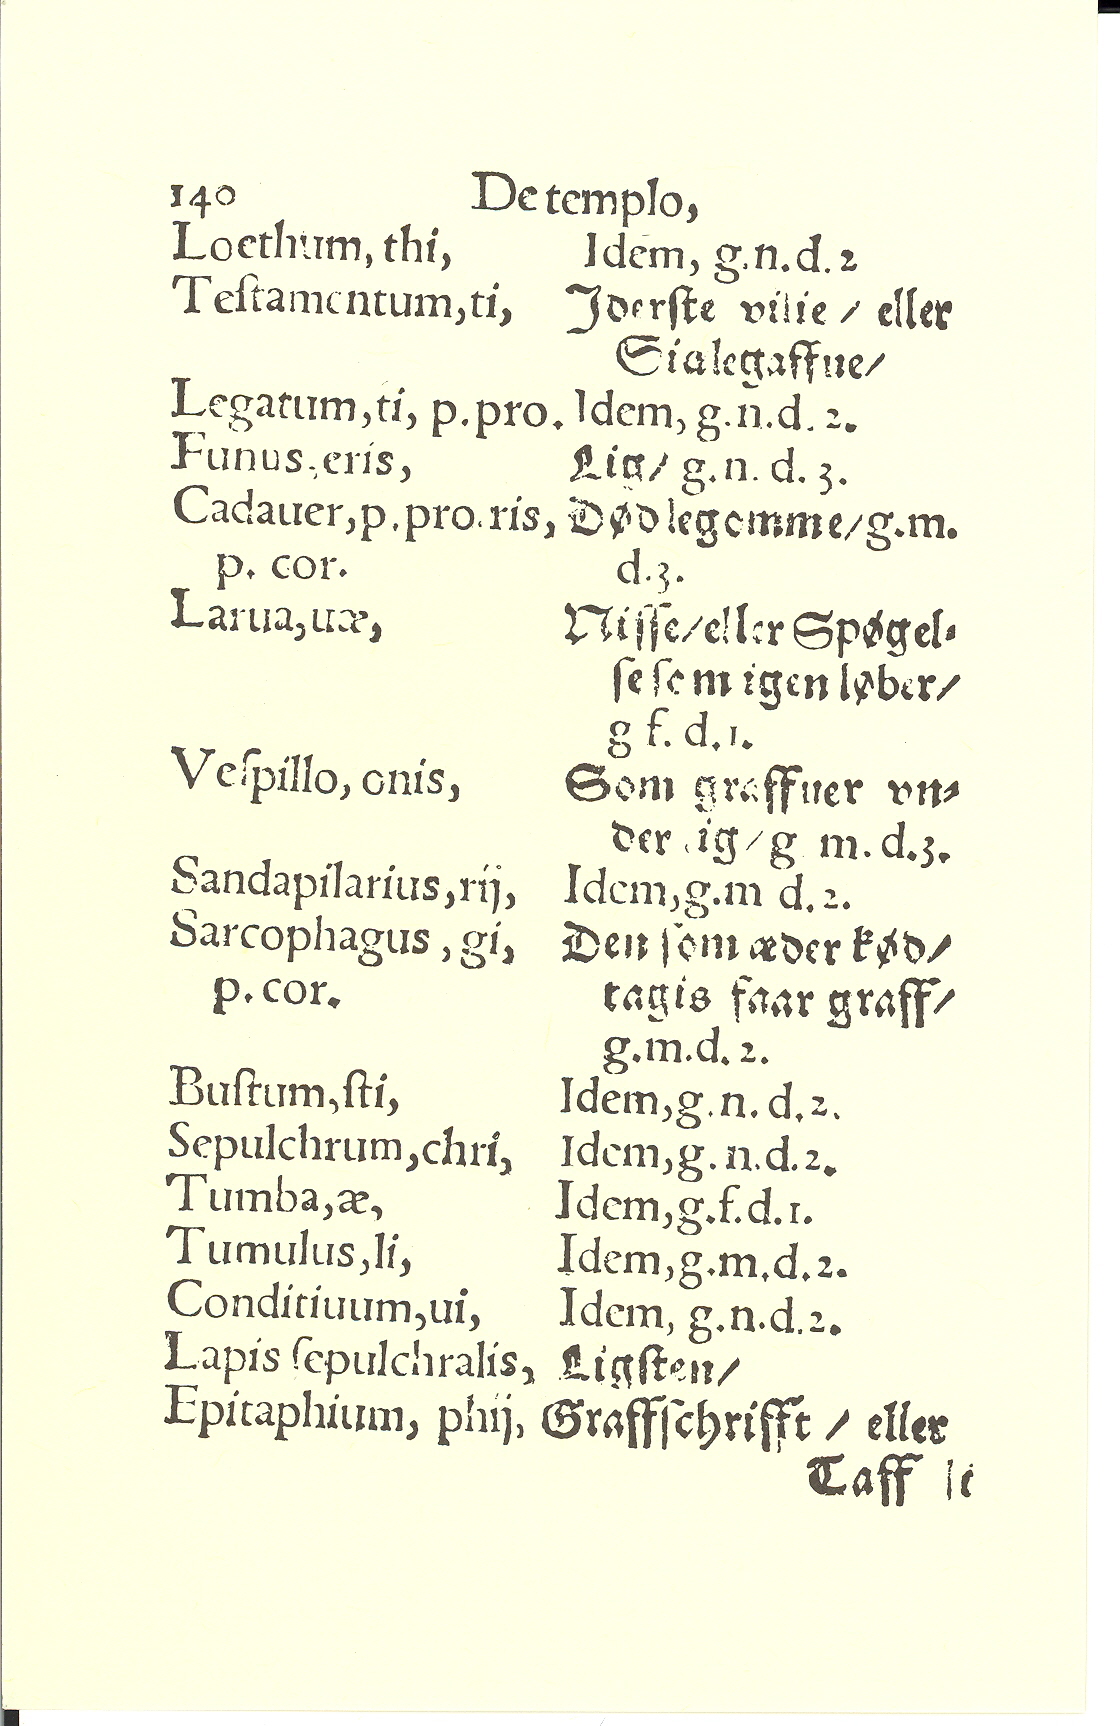 140 De templo,
Loethum, thi, Idem, g.n.d.2
Teſtamentum,ti, Iderſte vilie / eller
Sialegaffue/
Legatum,ti, p.pro. Idem, g.n.d.2.
Funus,eris, Lig/ g.n.d.3.
Cadauer,p.pro.ris, Dødlegomme/g.m.
p. cor. d.3.
Larua,uæ, Niſſe/eller Spøgel⸗
ſe ſom igen løber/
g f.d.1.
Veſpillo, onis, Som graffuer vn⸗
der ig/g m.d.3.
Sandapilarius,rij, Idem,g.m d.2.
Sarcophagus, gi, Den ſom æder kød/
p.cor. tagis faar graff/
g.m.d.2.
Buſtum,ſti, Idem,g.n.d.2.
Sepulchrum,chri, Idem,g.n.d.2.
Tumba,æ, Idem,g.f.d.1.
Tumulus,li, Idem,g.m.d.2.
Conditiuum,ui, Idem, g.n.d.2.
Lapis ſepulchralis, Ligſten/
Epitaphium, phij, Graffſchrifft / eller
Taff